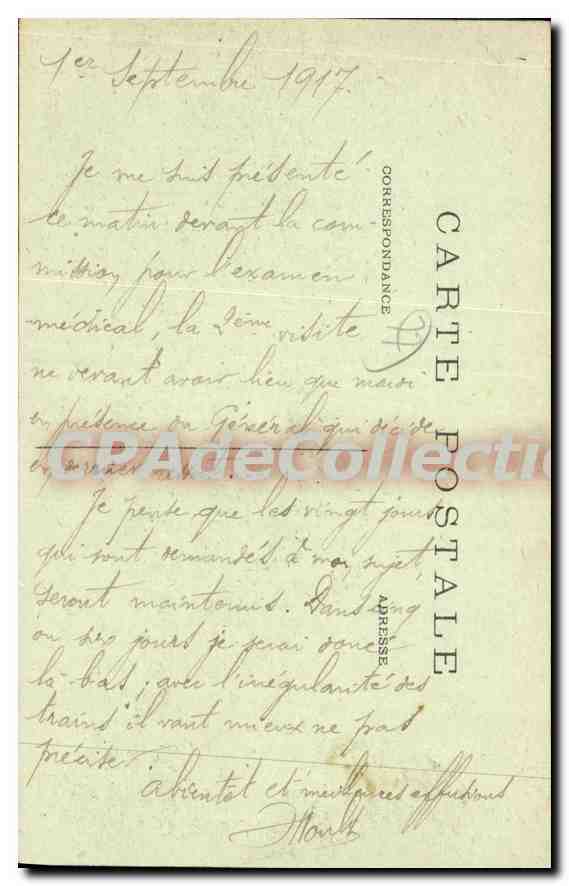 1er Septembre 1917.
Je me suis présenté
ce matin devant la com-
mission pour l'examen
médical, la 2ème visite
ne devant avoir lieu que mardi
en présence du Général qui décide
en dernier
Je pense que les vingt jours
qui sont demandés à mon sujet
seront maintenus. Dans cinq
ou six jours je serai donc
là-bas; avec l'irrégularité des
trains il vaut mieux ne pas
préciser
à bientôt et meilleures effusions
CARTE POSTALE
CORRESPONDANCE
ADRESSE
CPAdeCollection